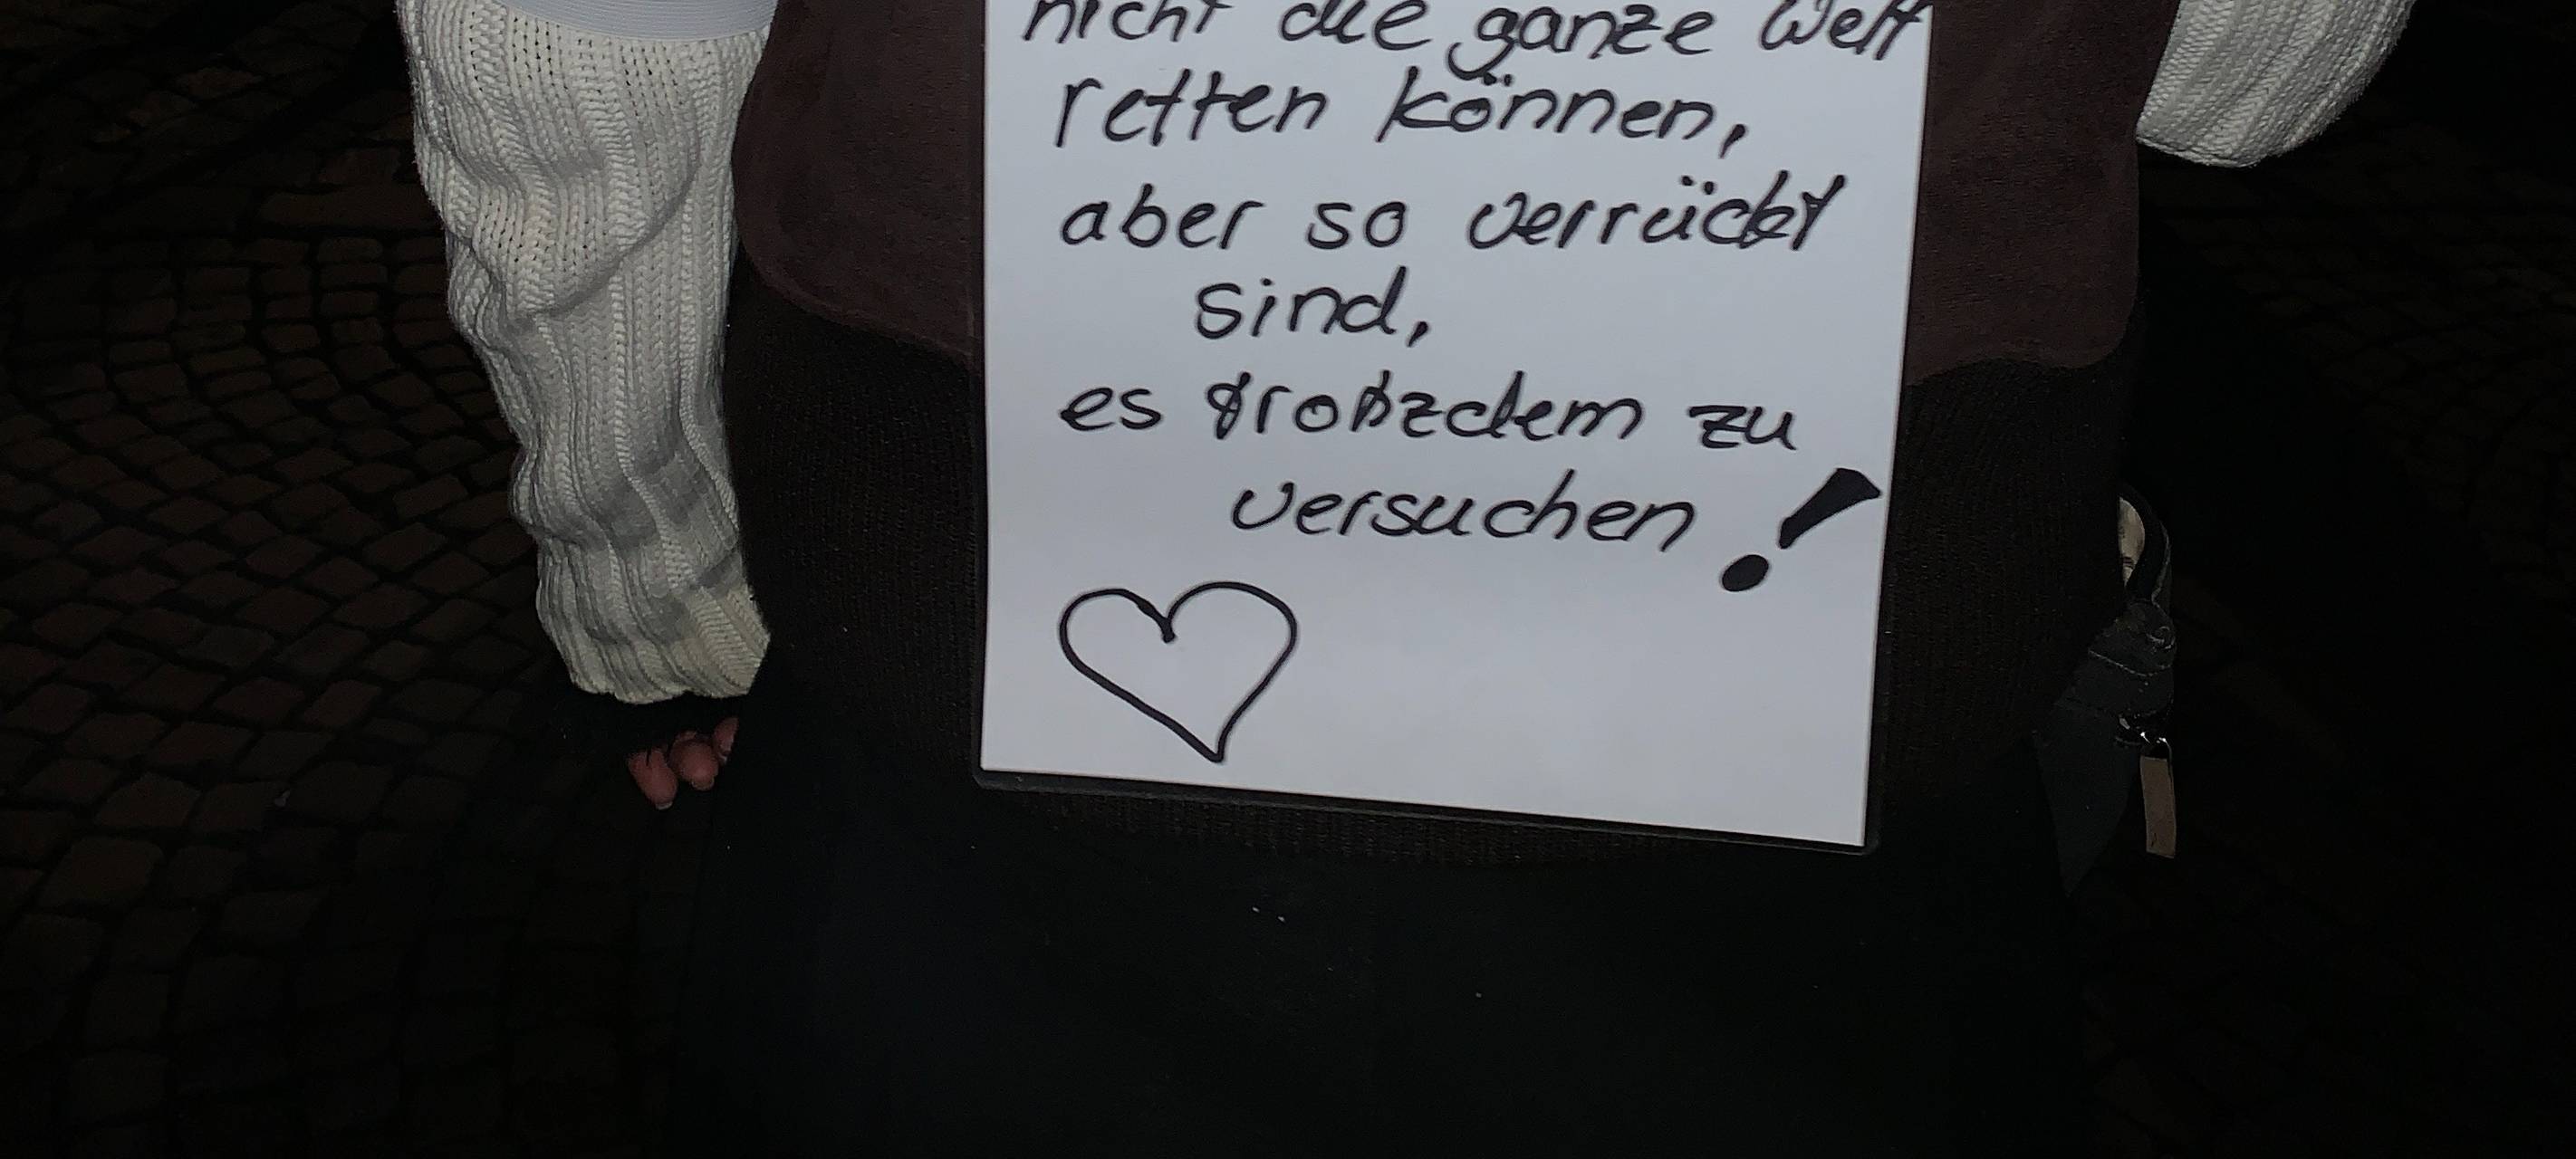 nicht die ganze Welt
retten können,
aber so verrückt
sind,
es trotzdem zu
versuchen!